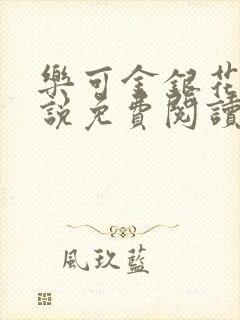 樂可金銀花
說免費閱讀
風玖藍